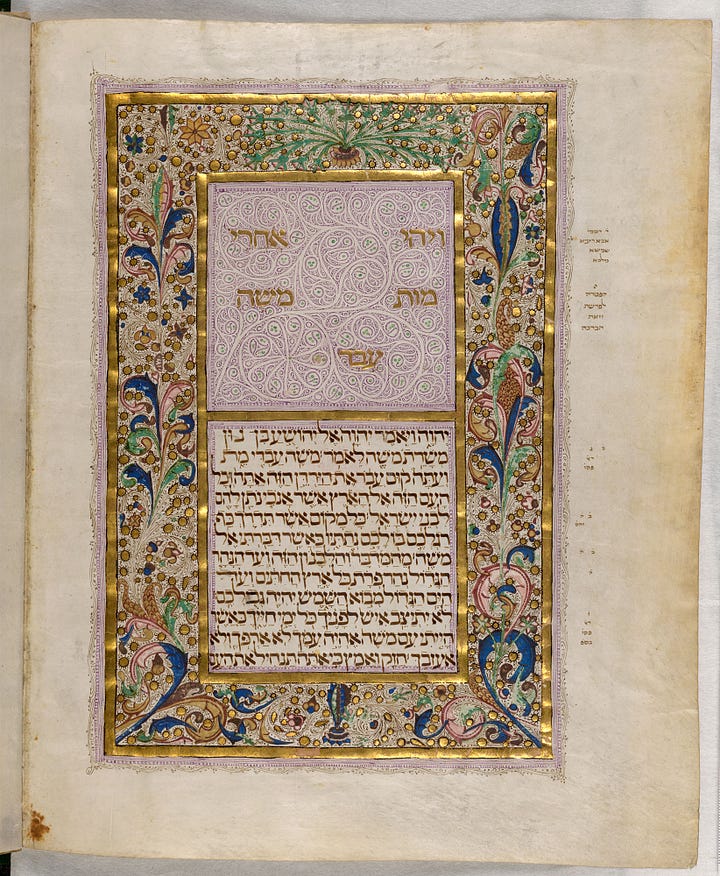 ויהי אחרי
מות משה
עבד
יהוה ויאמר יהוה אל יהושע בן נון
משרת משה לאמר משה עבדי מת
ועתה קום עבר את הירדן הזה אתה וכל
העם הזה אל הארץ אשר אנכי נתן להם
לבני ישראל כל מקום אשר תדרך כף
רגלכם בו לכם נתתיו כאשר דברתי אל
משה מהמדבר והלבנון הזה ועד הנהר
הגדול נהר פרת כל ארץ החתים ועד
הים הגדול מבוא השמש יהיה גבולכם
לא יתיצב איש לפניך כל ימי חייך כאשר
הייתי עם משה אהיה עמך לא ארפך ולא
אעזבך חזק ואמץ כי אתה תנחיל את העם
הפטרה
לפרשת
וזאת
הברכה